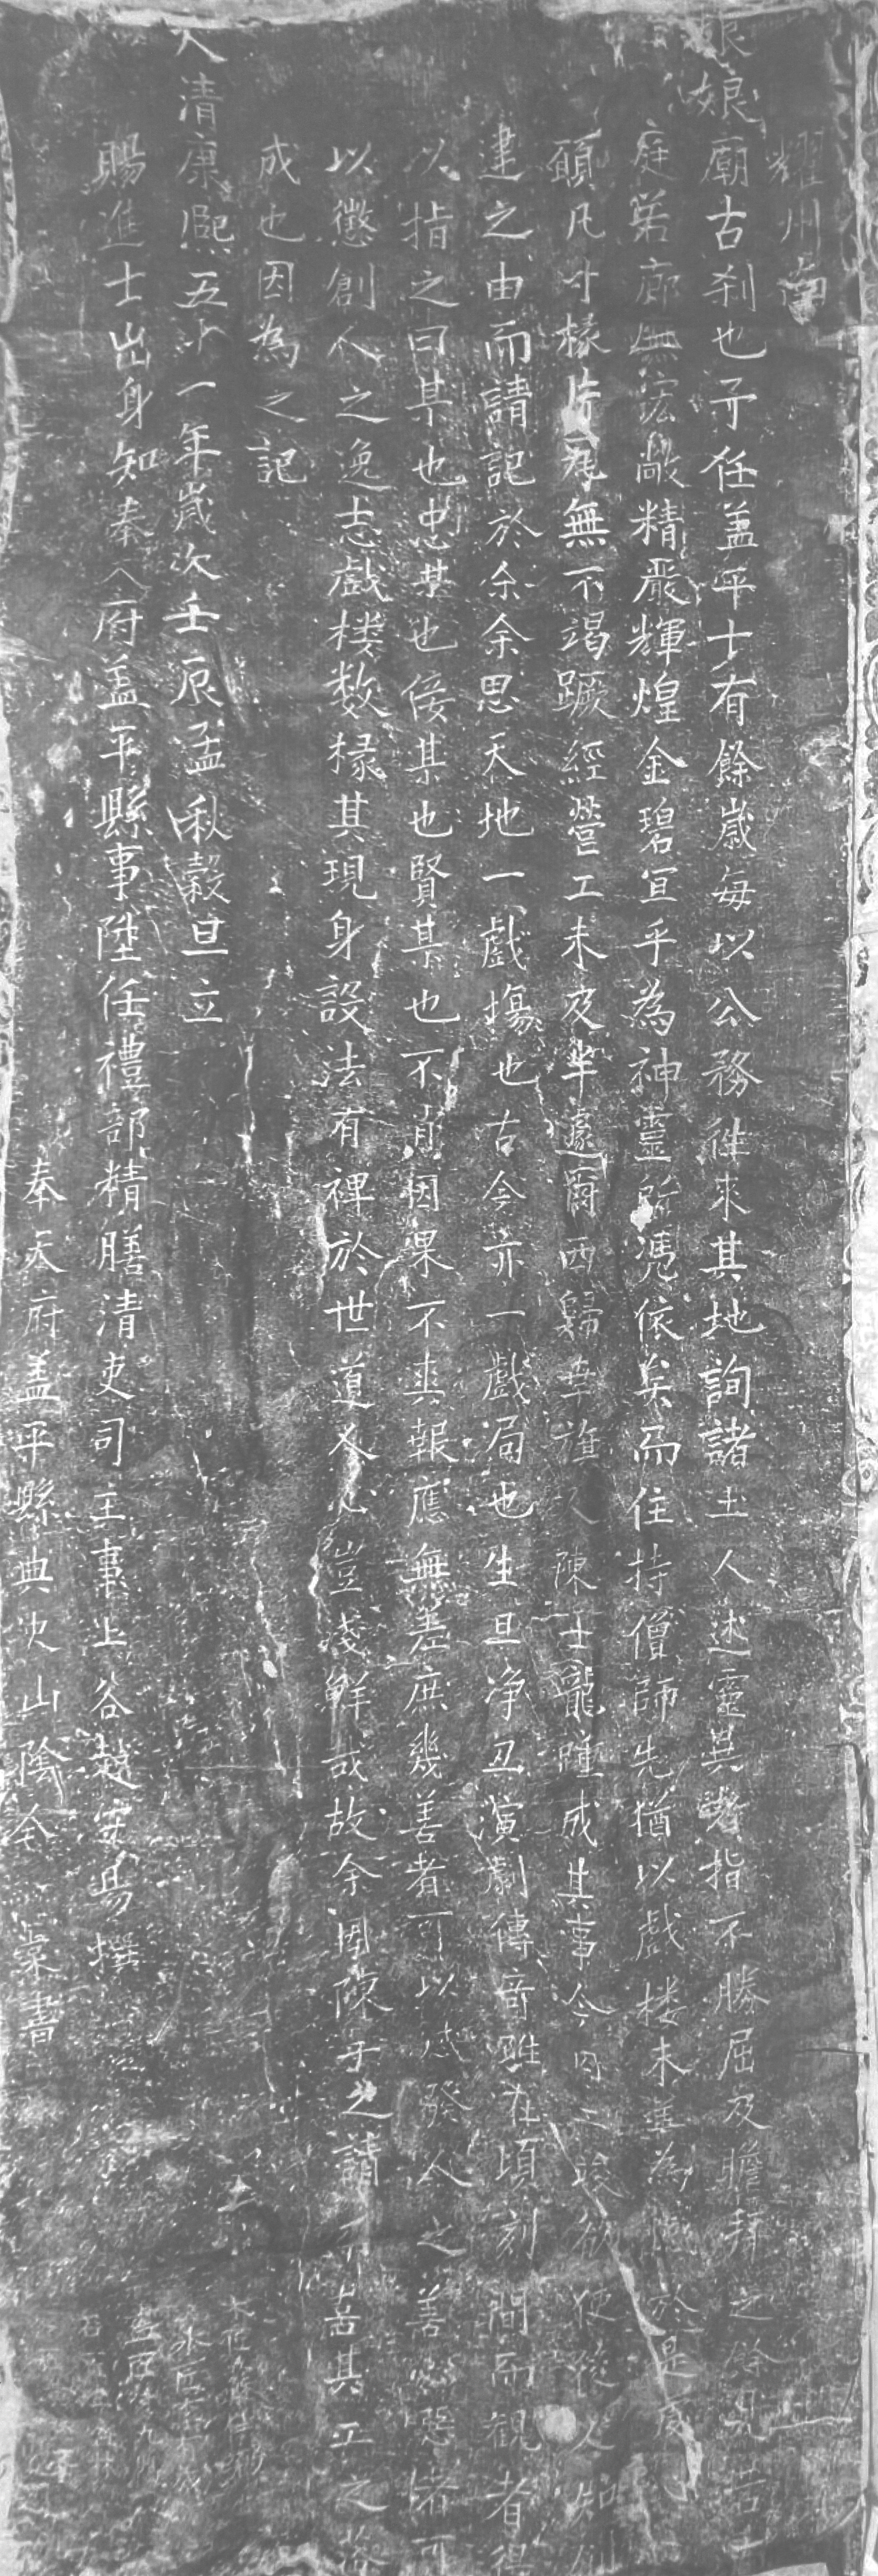 耀州南
娘娘廟古刹也予任盖平十有餘歲每以公務徃來其地詢諸土人述靈異者指不勝屈及瞻拜之餘見若
庭若廊無不宏敞精嚴輝煌金碧宜乎為神靈所憑依矣而住持僧師先猶以戲楼未建為於是
願凡寸椽片瓦無不竭蹶經營工未及半遽爾西歸幸旗人陳士龍踵成其事今功竣欲使後人知創
建之由而請記於余余思天地一戲場也古今亦一戲局也生旦净丑演劇傳奇雖在頃刻間而觀者得
以指之曰某也忠某也佞某也賢某也不肖因果不爽報應無差庶幾善者可以感發人之善心惡者可
以懲創人之逸志戲楼数椽其現身設法有裨於世道人心豈淺鮮哉故余因陳子之請而喜其工之
成也因為之記
大清康熙五十一年歲次壬辰孟秋穀旦立
賜進士出身知奉天府盖平縣事陞任禮部精膳清吏司主事上谷趙宋易撰
奉天府盖平縣典史山陰全 書